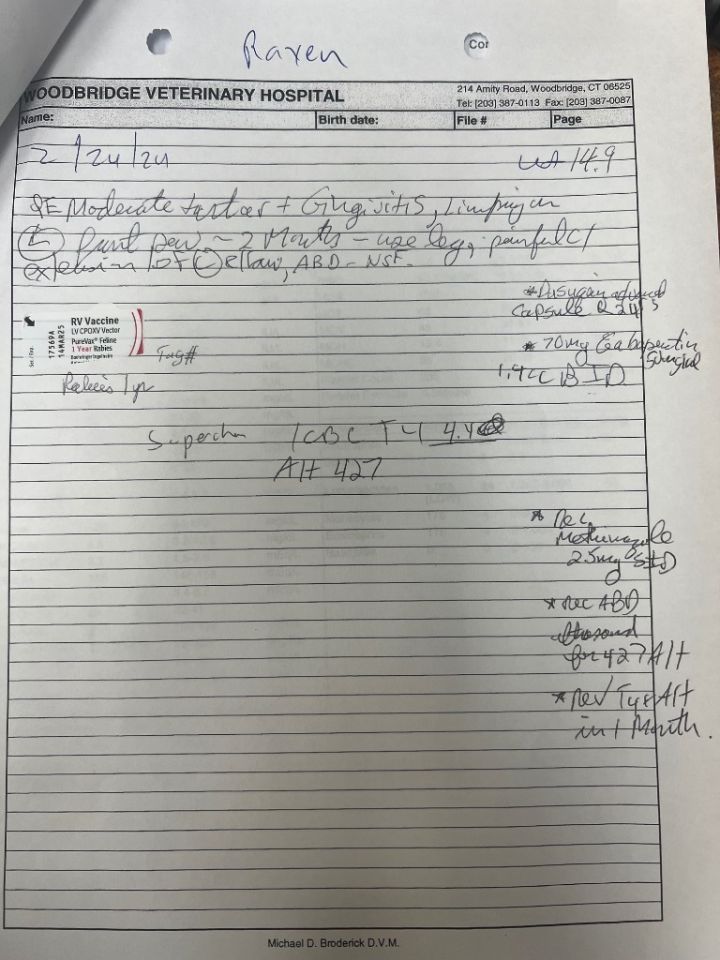 Raven
Cor
WOODBRIDGE VETERINARY HOSPITAL
214 Amity Road, Woodbridge, CT 06525
Tel: (203) 387-0113 Fax: (203) 387-0087
Name:
Birth date:
File #
Page
2/24/24
wt 14.9
PE Moderate tartar + Gingivitis, Limping on
(L) front paw ~ 2 Months - use leg, painful
extension of (L) elbow, ABD - NSF.
* Dasuquin advanced
capsule Q 24
RV Vaccine
LV CPOXV Vector
PureVax® Feline
1 Year Rabies
17569A
14MAR25
Tag#
Rabies 1yr
* 70mg Gabapentin
50mg/ml
1.4cc BID
Superchem /CBC T4 4.4
Alt 427
* Rec
Methimazole
2.5mg SID
* rec ABD
ultrasound
for 427 Alt
* rev T4 & Alt
in 1 Month.
Michael D. Broderick D.V.M.